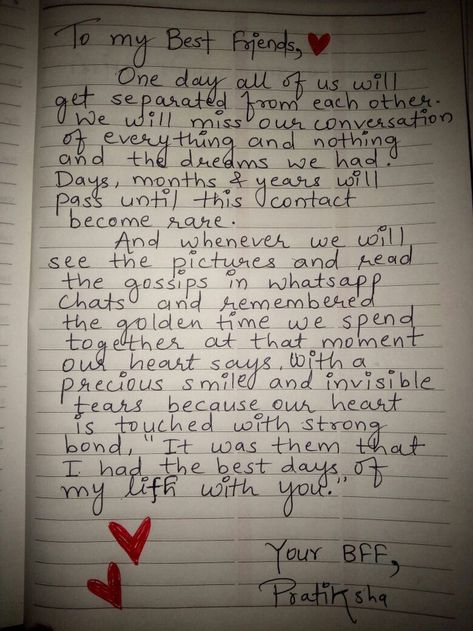 To my Best Friends,
One day all of us will
get separated from each other.
We will miss our conversation
of everything and nothing
and the dreams we had.
Days, months & years will
pass until this contact
become rare.
And whenever we will
see the pictures and read
the gossips in whatsapp
chats and remembered
the golden time we spend
together at that moment
our heart says, with a
precious smile and invisible
tears because our heart
is touched with strong
bond, "It was them that
I had the best days of
my life with you."
Your BFF,
Pratiksha